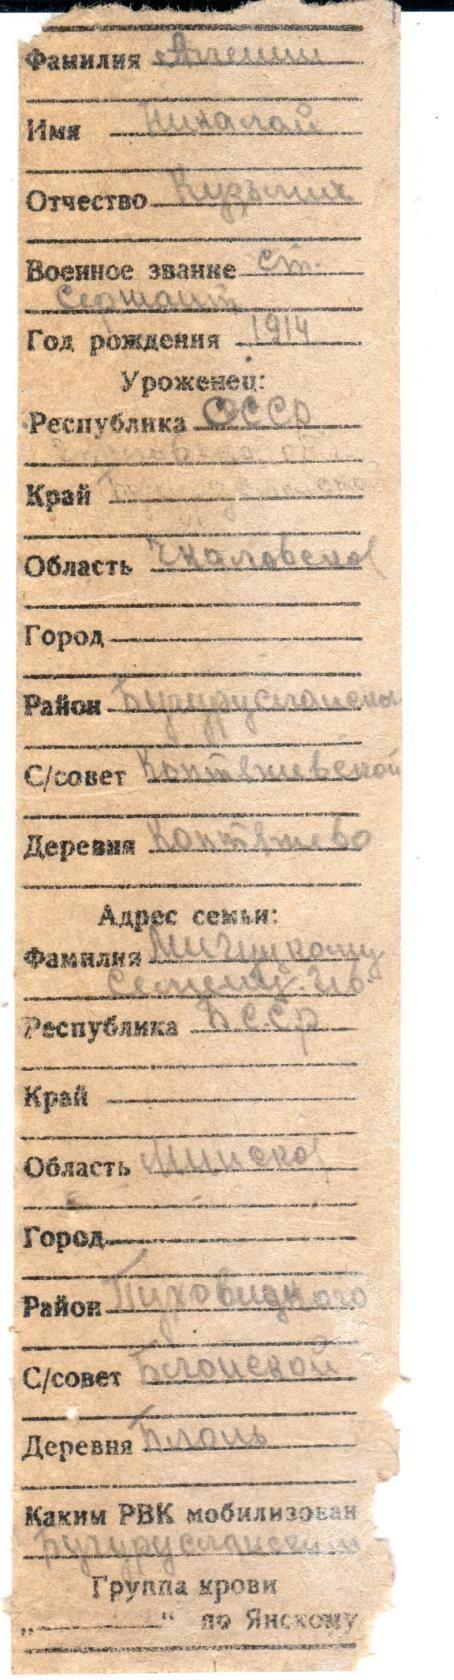 Фамилия
Имя Николай
Отчество Кузьмич
Военное звание ст.
сержант
Год рождения 1914
Уроженец:
Республика СССР
Край
Область Чкаловской
Город
Район Бугурусланский
С/совет Коптяжевской
Деревня Коптяжево
Адрес семьи:
Фамилия Мигуцкому
Семену Ив.
Республика БССР
Край
Область Минской
Город
Район Пуховицкого
С/совет Блонской
Деревня Блонь
Каким РВК мобилизован
Бугурусланским
Группа крови
„ “ по Янскому